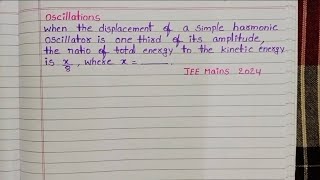 Oscillations
When the displacement of a simple harmonic
oscillator is one third of its amplitude,
the ratio of total energy to the kinetic energy
is x/8, where x = ____.
JEE Mains 2024